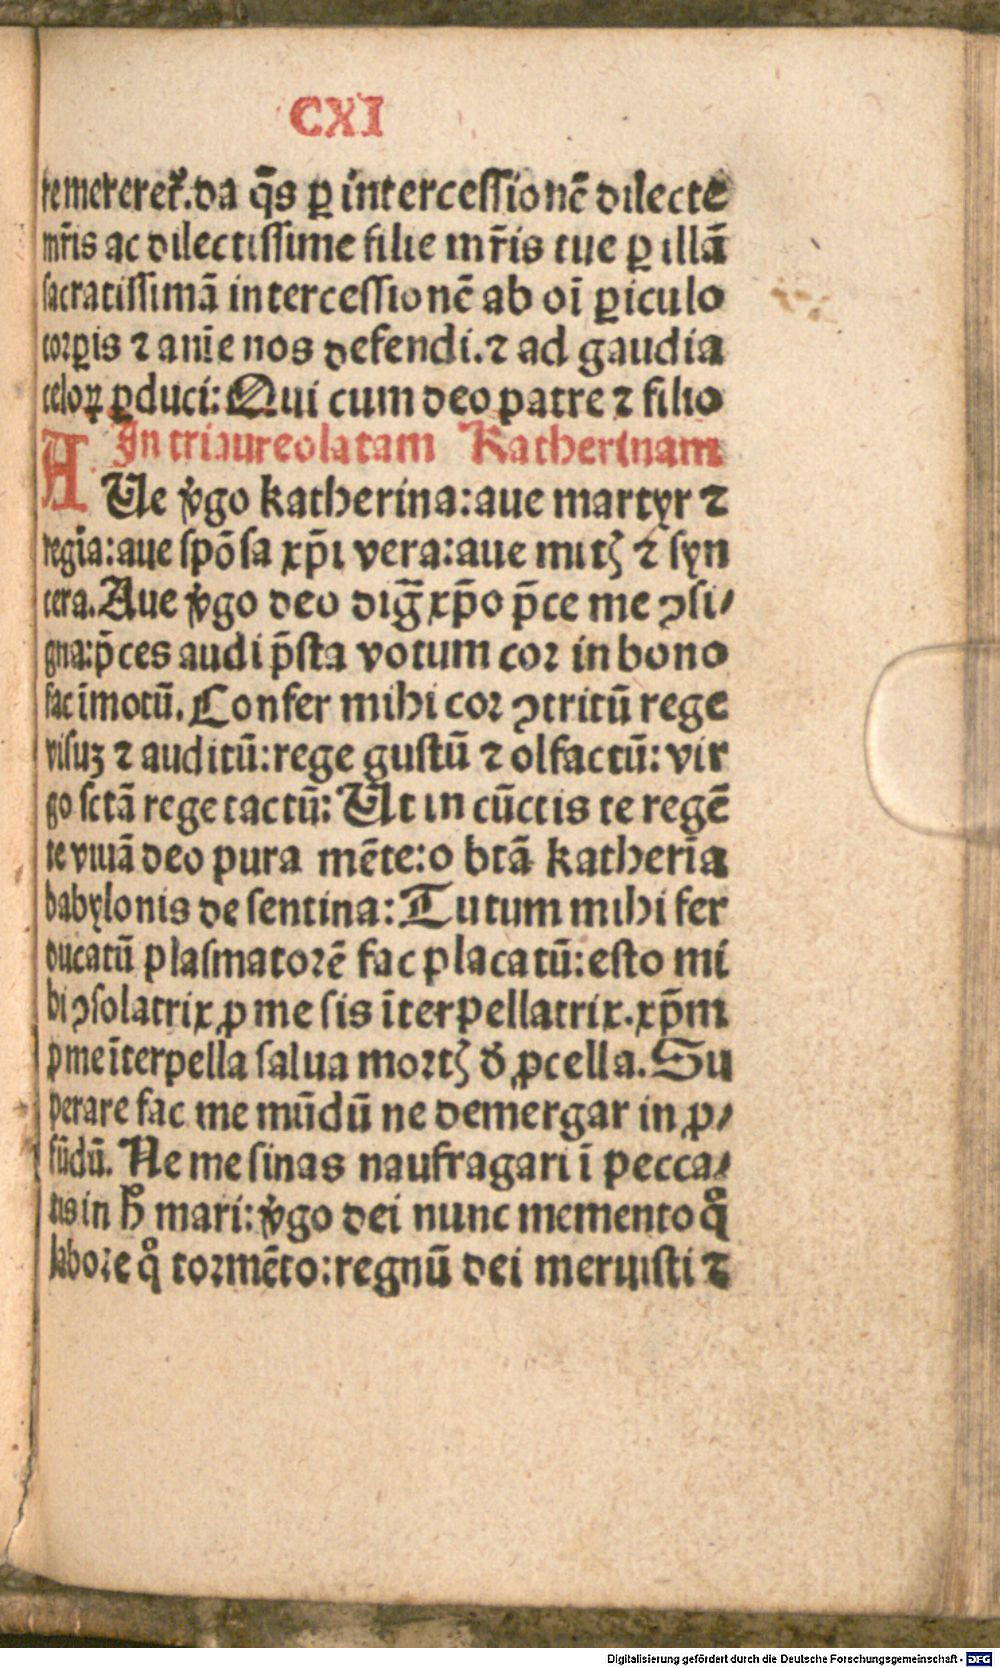 CXI
te mereret̃. da q̄s ꝑ intercessionē dilecte
mr̄is ac dilectissime filie mr̄is tue ꝑ illā
sacratissimā intercessionē ab oī ꝑiculo
corꝑis ⁊ anīe nos defendi. ⁊ ad gaudia
celoꝝ ꝑduci: Qui cum deo patre ⁊ filio
In triaureolatam Katherinam
AUe v̄go katherina: aue martyr ⁊
regia: aue spōsa xp̄i vera: aue mitꝭ ⁊ syn
cera. Aue v̄go deo dig̅ xp̄o p̄ce me ꝯsi/
gna: p̄ces audi p̄sta votum cor in bono
fac īmotū. Confer mihi cor ꝯtritū rege
visuꝫ ⁊ auditū: rege gustū ⁊ olfactū: vir
go sctā rege tactū: Ut in cūctis te regē
te viuā deo pura mēte: o btā katherīa
babylonis de sentina: Tutum mihi fer
ducatū plasmatorē fac placatū: esto mi
hi ꝯsolatrix ꝓ me sis īterpellatrix. xp̄m
ꝓ me īterpella salua mortꝭ d̄ ꝓcella. Su
perare fac me mūdū ne demergar in ꝓ/
fūdū. Ne me sinas naufragari ī pecca/
tis in hͦ mari: v̄go dei nunc memento qͦ
labore qͦ tormēto: regnū dei meruisti ⁊
Digitalisierung gefördert durch die Deutsche Forschungsgemeinschaft - DFG